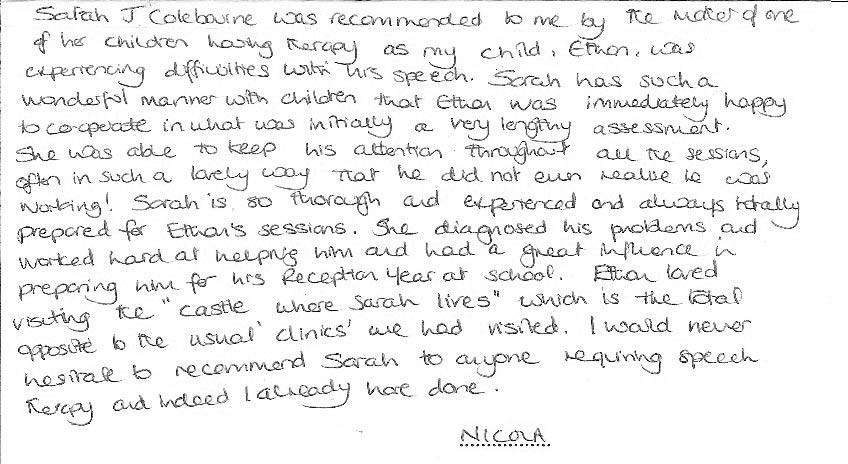 Sarah J Colebourne was recommended to me by the mother of one
of her children having therapy as my child, Ethan, was
experiencing difficulties with his speech. Sarah has such a
wonderful manner with children that Ethan was immediately happy
to co-operate in what was initially a very lengthy assessment.
She was able to keep his attention throughout all the sessions,
often in such a lovely way that he did not even realise he was
working! Sarah is so thorough and experienced and always totally
prepared for Ethan's sessions. She diagnosed his problems and
worked hard at helping him and had a great influence in
preparing him for his Reception Year at school. Ethan loved
visiting the "castle where Sarah lives" which is the total
opposite to the usual 'clinics' we had visited. I would never
hesitate to recommend Sarah to anyone requiring speech
therapy and indeed I already have done.
NICOLA